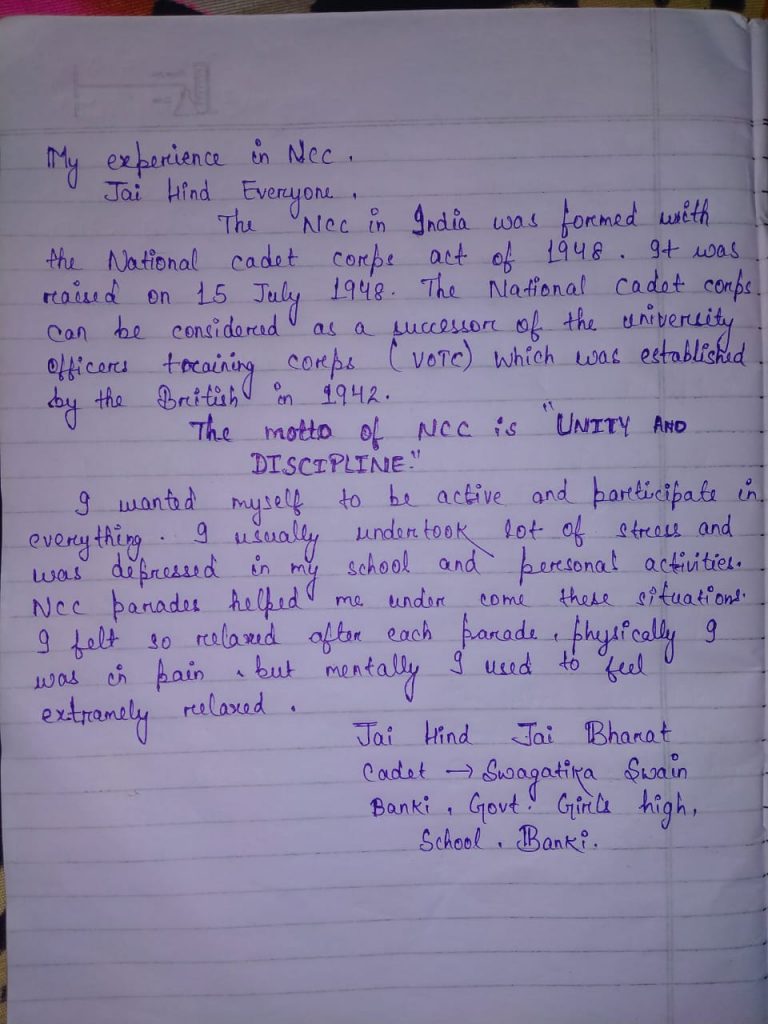 My experience in Ncc.
Jai Hind Everyone.
The Ncc in India was formed with
the National cadet corps act of 1948. It was
raised on 15 July 1948. The National cadet corps
can be considered as a successor of the university
officers training corps (VOTC) which was established
by the British in 1942.
The motto of NCC is "UNITY AND
DISCIPLINE."
I wanted myself to be active and participate in
everything. I usually undertook lot of stress and
was depressed in my school and personal activities.
Ncc parades helped me under come these situations.
I felt so relaxed after each parade, physically I
was in pain, but mentally I used to feel
extramely relaxed.
Jai Hind Jai Bharat
Cadet → Swagatika Swain
Banki, Govt. Girls high,
School, Banki.